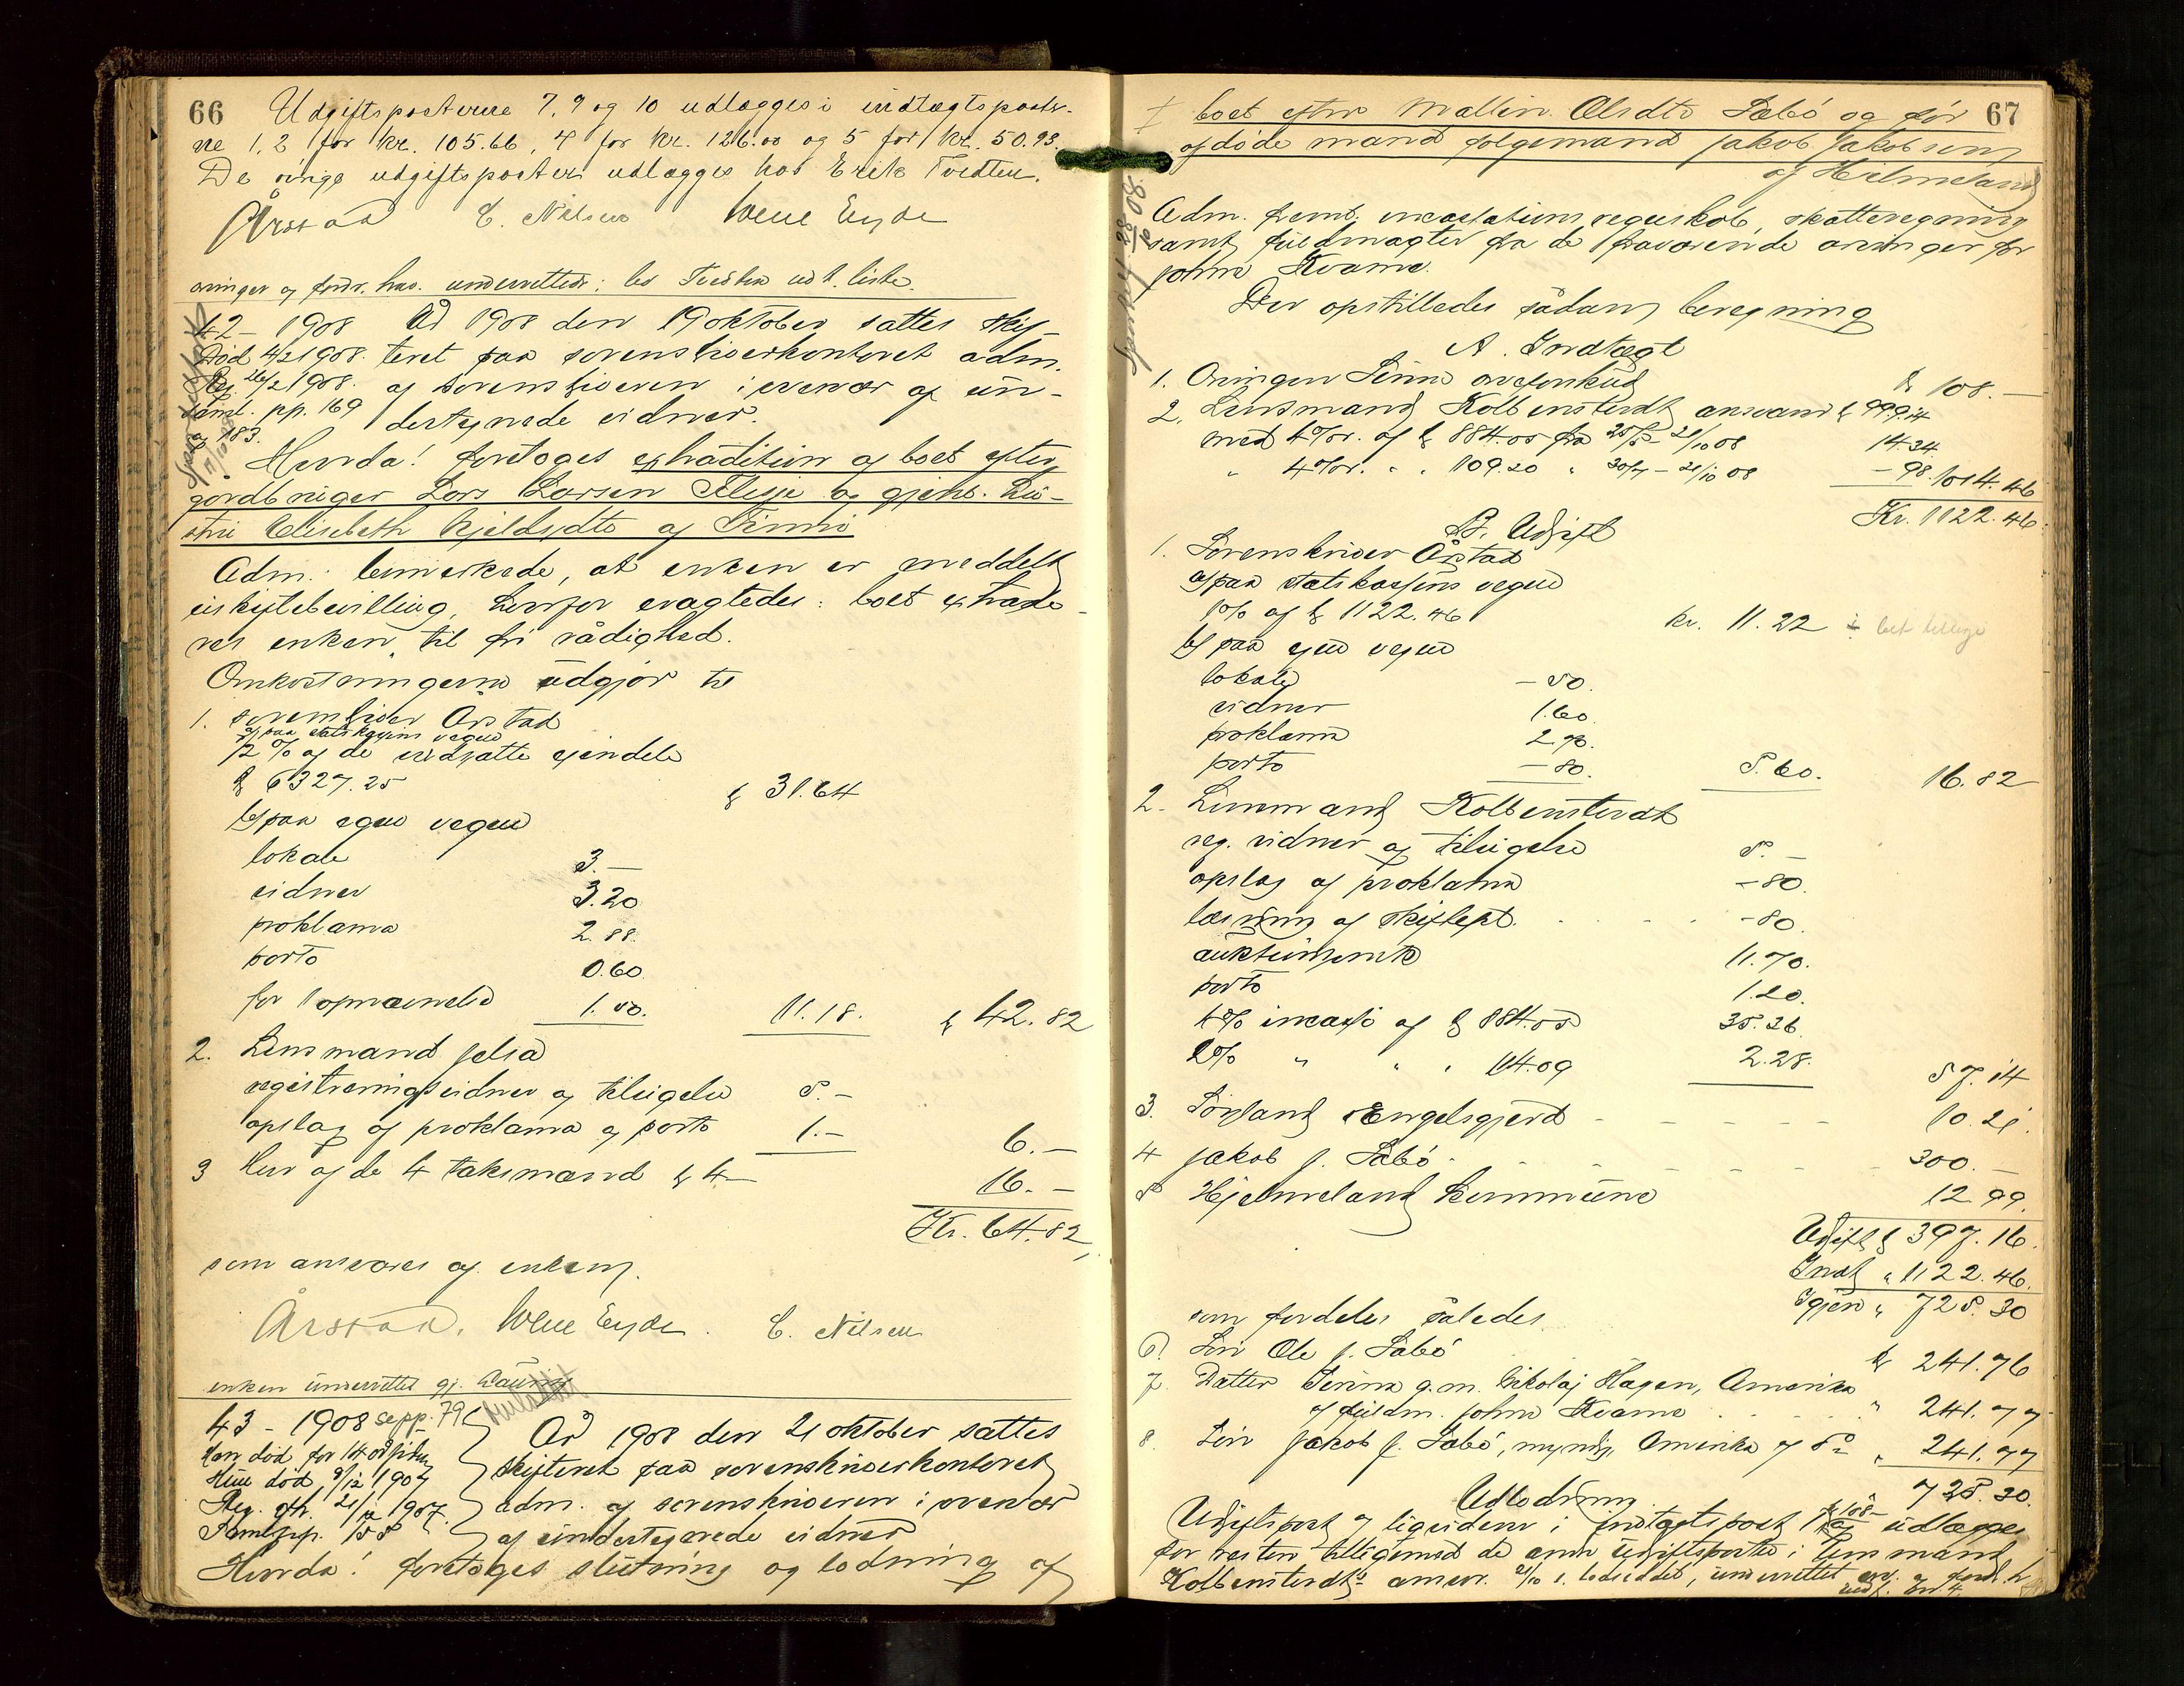 66 Udgiftsposterne 7, 9 og 10 udlægges i indtægtsposter-
ne 1, 2 for kr. 105.66, 4 for kr. 126.00 og 5 for kr. 50.93.
De øvrige udgiftsposter udlægges hos Erik Tvedten.
Årstad C. Nilsen Wene Eyde
arvinger og fordr. hav. underrettede;
42 - 1908
Død 4/2 1908.
Reg 26/2 1908.
saml. pp. 169
og 183.
År 1908 den 19 oktober sattes skif-
teret paa sorenskriverkontoret adm.
af sorenskriveren i overvær af un-
dertegnede vidner.
Hvorda! foretoges extradition af boet efter
gårdbruger Lars Larsen og gjenl. hu-
stru Elisabeth Kjeldsdtr af
Adm. bemerkede, at enken er meddelt
uskiftebevilling, hvorfor eragtedes: boet extrade-
res enken til fri rådighed.
Omkostningerne udgjør til
1. sorenskriver Årstad
a) paa statskassens vegne
1/2 % af de ansatte eiendele
kr 6327.25 kr 31.64
b) paa egne vegne
lokale 3.—
vidner 3.20
proklama 2.88.
porto 0.60.
for 1 opnævnelse 1.50. 11.18. kr 42.82
2. Lensmand Jelsa
registreringsvidner og tilsigelse 5.-
opslag af proklama og porto 1.- 6.—
3 Hver af de 4 taksmænd kr 4.— 16.—
Kr. 64.82
som ansvares af enken.
Årstad. Wene Eyde. C. Nilsen
enken underrettet gj.
43 - 1908 se pp. 79
Han død for 14 år siden
Hun død 9/12 1907
Reg. 21/12 1907.
Saml. pp. 155
År 1908 den 21 oktober sattes
skifteret paa sorenskriverkontoret
adm. af sorenskriveren i overvær
af undertegnede vidner
Hvorda! foretoges slutning og lodning af
67
boet efter Mallin Olsdtr Sæbø og før
afdøde mand følgemand Jakob Jakobsen
af Hjelmeland
Adm. freml. incassations regnskab, skatteregning
samt fuldmagter fra de fraværende arvinger for
John Kvame.
Der opstilledes sådan beregning
A. Indtægt
1. Arvingen Sønn kr 108.—
2. Lensmand Kolbenstvedt ansvar kr 999.14
med 4% r. af kr 884.05 fra 25/5 - 21/10 08 14.34
" 4% r. " " 109.20 " 30/7 - 21/10 08 - 98. 1014.46
Kr. 1122.46
B. Udgift
1. Sorenskriver Årstad
a) paa statskassens vegne
1% af kr 1122.46 kr. 11.22
b) paa egne vegne
lokale - 50.
vidner 1.60
proklama 2.70.
porto - 80. 5.60. 16.82
2. Lensmand Kolbenstvedt
reg. vidner og tilsigelse 5.—
opslag af proklama - 80.
læsning af skiftepl. - 80.
11.70.
porto 1.20.
4% incasso af kr 884.05 35.36
2% " " " 114.09 2.28. 57.14
3. Engelsgjerd 10.21.
4 Jakob J. Sæbø 300.—
5 Hjelmeland kommune 12.99.
Udgift kr 397.16.
Indt " 1122.46.
Igjen " 725.30
som fordeles således
6. Søn Ole J. Sæbø kr 241.76
7. Datter g.m. Nikolaj Hagen, Amerika
v/ fuldm. John Kvame " 241.77
8. Søn Jakob J. Sæbø, myndig, Amerika v/ do " 241.77
725.30.
Udlodning.
Udgiftspost 7 ligviderer i Indtægtspost 1 kr 108.— udlægges
for resten tilligemed de andre udgiftsposter i lensmand
Kolbenstvedts ansvar.